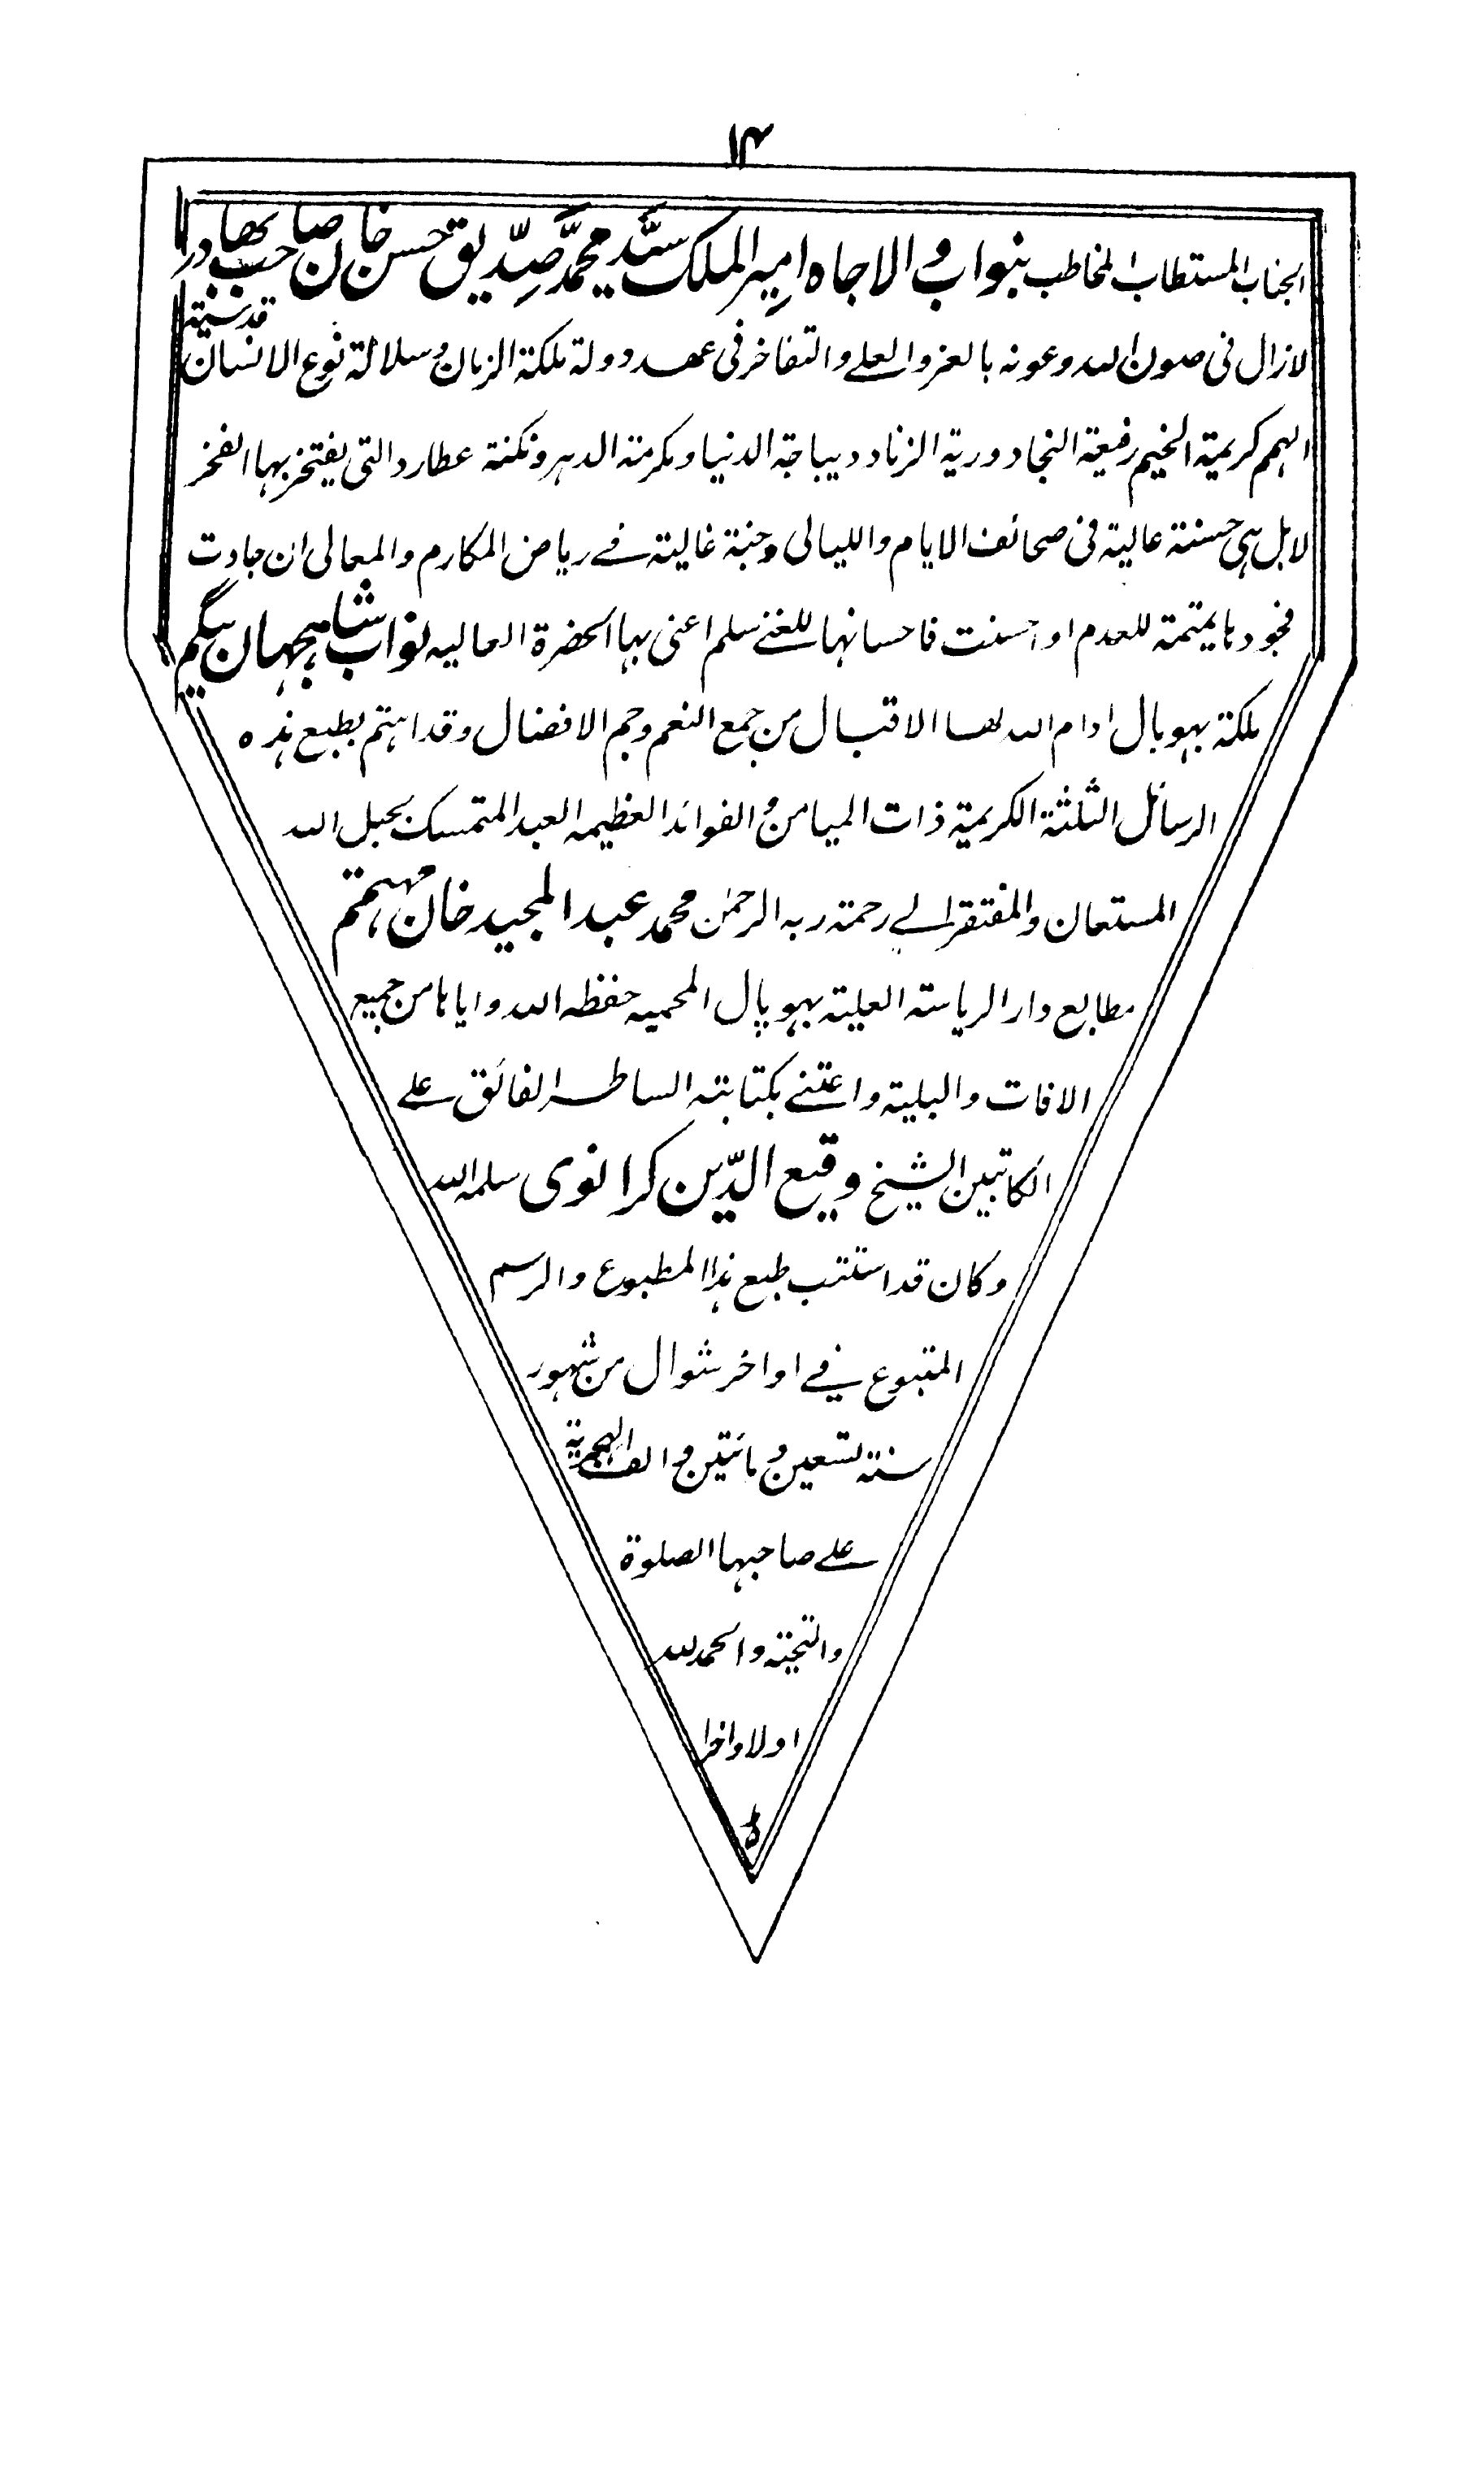 ١٤
الجناب المستطاب المخاطب بنواب والاجاه امير الملك سيّد محمّد صدّيق حسن خان صاحب بهادر
لازال فى صون الله وعونه بالعز والعلے والتفاخر فى عهد دولة ملكة الزمان وسلالة نوع الانسان قدسية
الهمم كريمة الخيم رفيعة النجاد ورية الزناد ديباجة الدنيا ومكرمة الدهر ونكتة عطارد التى يفتخر بها الفخر
لابل هى حسنة عالية فى صحائف الايام والليالى وجنة غالية فے رياض المكارم والمعالى ان جادت
فجودها يتمة للعدم او احسنت فاحسانها للغنے سلم اعنى بها الحضرة العاليه نواب شاہجہان بیگم
ملكة بهوبال ادام الله لها الاقبال من جمع النعم وجم الافضال وقد اهتم بطبع هذه
الرسائل الثلثة الكريمة ذات الميامن والفوائد العظيمه العبد المتمسك بحبل الله
المستعان والمفتقر الے رحمة ربه الرحمٰن محمد عبد المجيد خان مهتمم
مطابع دار الرياسته العلية بهوپال المحميه حفظه الله واياها من جميع
الافات والبلية واعتنے بكتابته الساطر الفائق علے
الكاتبين الشيخ وقيع الدّين كرانوى سلمه الله
وكان قد استتب طبع هذا المطبوع والرسم
المتبوع فے اواخر شوال من شهور
سنة تسعين ومائتين والف الهجرية
علے صاحبها الصلوة
والتحية والحمد لله
اولا واخرا